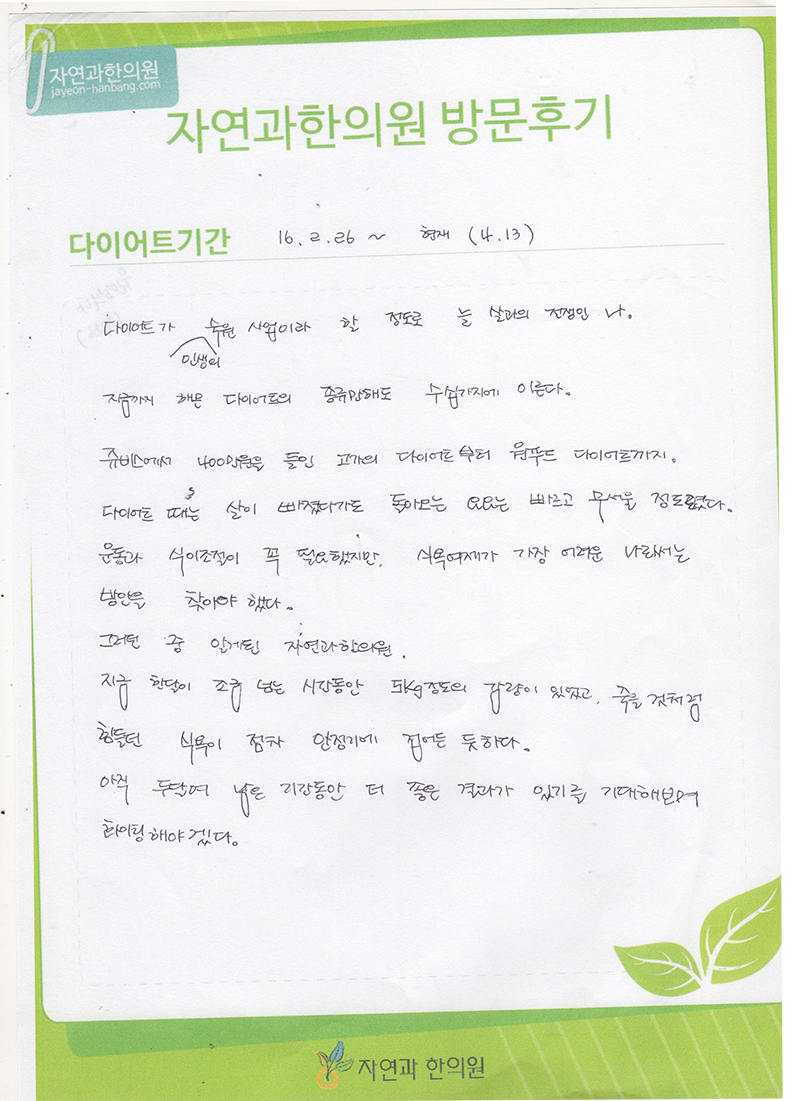 자연과한의원
jayeon-hanbang.com
자연과한의원 방문후기
다이어트기간 16. 2. 26 ~ 현재 (4. 13)
다이어트가 숙원 사업이라 할 정도로 늘 살과의 전쟁인 나.
인생의
지금까지 해본 다이어트의 종류만해도 수십가지에 이른다.
쥬비스에서 400만원을 들인 고가의 다이어트부터 원푸드 다이어트까지.
다이어트 때는 살이 빠졌다가도 돌아오는 요요는 빠르고 무서울 정도였다.
운동과 식이조절이 꼭 필요했지만, 식욕억제가 가장 어려운 나로서는
방안을 찾아야 했다.
그러던 중 알게된 자연과한의원.
지금 한달이 조금 넘는 시간동안 5kg정도의 감량이 있었고, 죽을 것처럼
힘들던 식욕이 점차 안정기에 접어든 듯하다.
아직 두달여 남은 기간동안 더 좋은 결과가 있기를 기대해보며
화이팅해야겠다.
자연과 한의원